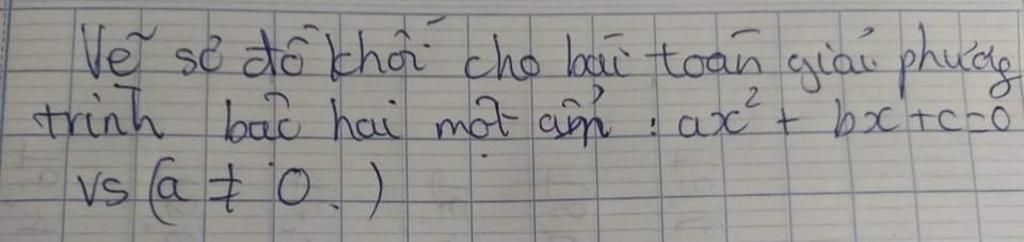 Vẽ sơ đồ khối cho bài toán giải phương
trình bậc hai một ẩn : ax² + bx+c=0
vs (a ≠ 0.)